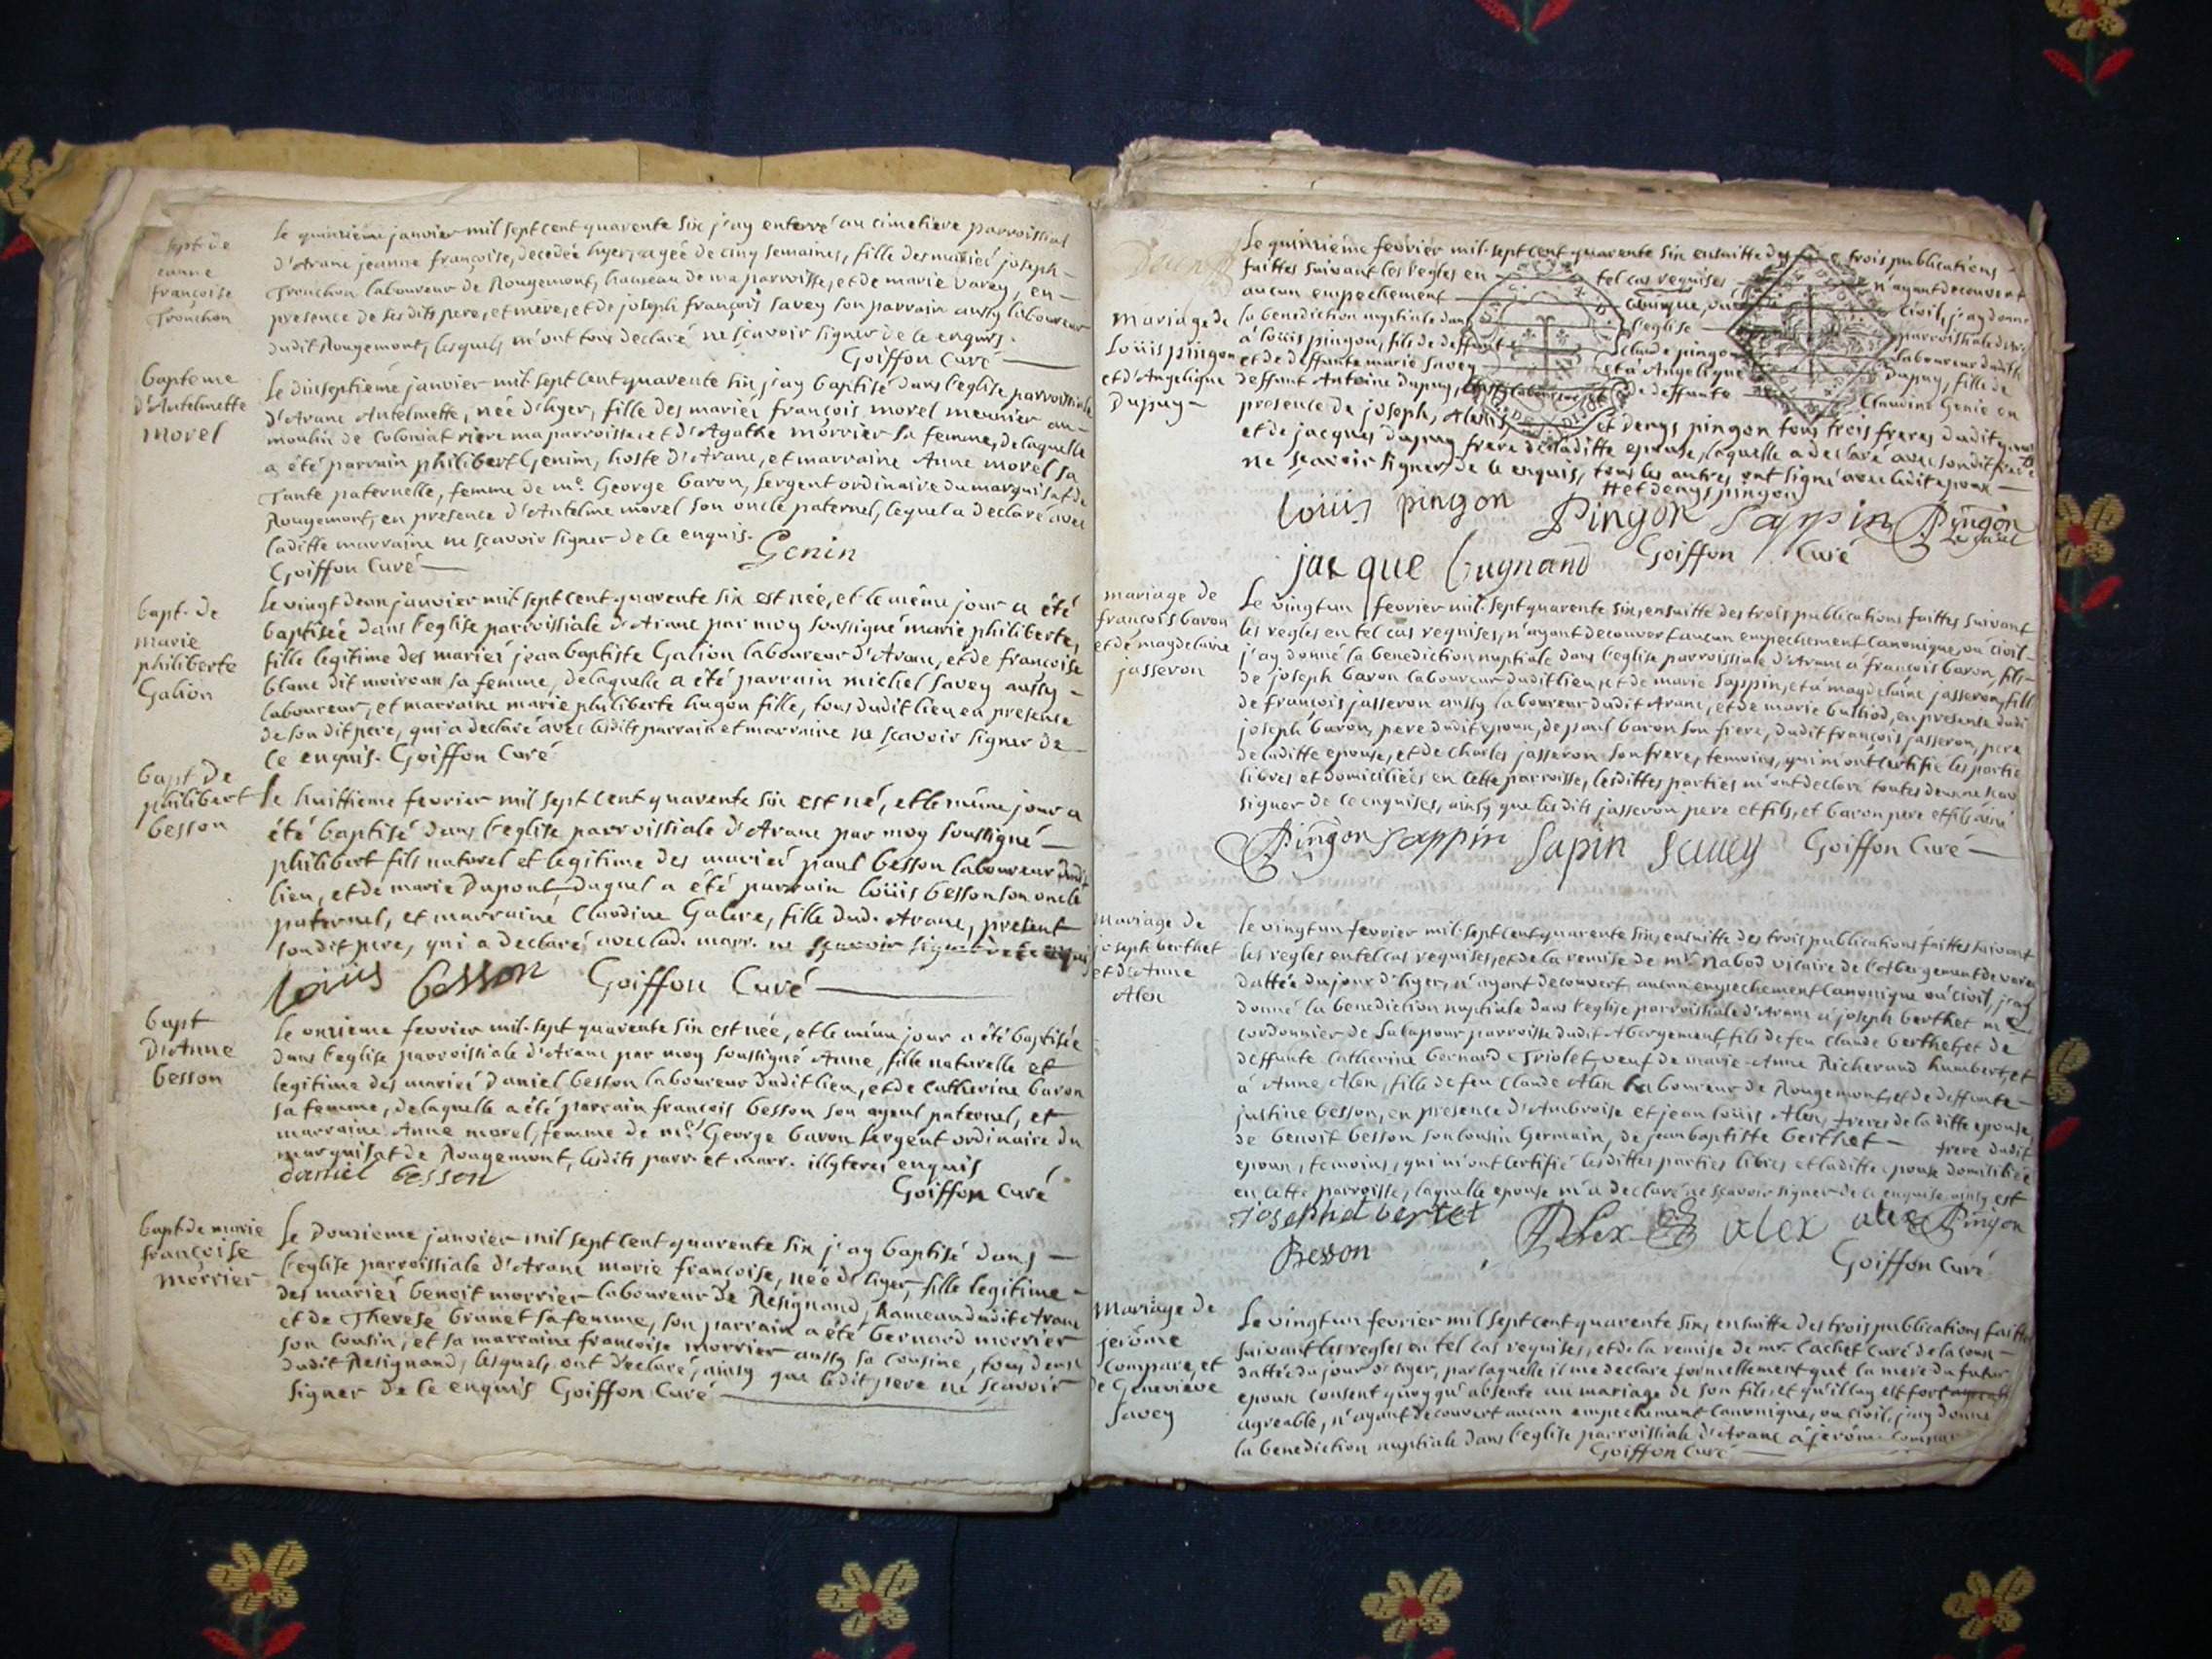 sept. de
Jeanne
francoise
Tronchon
Le quinzième janvier mil sept cent quarente six j'ay enterré au cimetiere parroissial
d'Aranc jeanne françoise, decedée hyer, agée de cinq semaines, fille des mariéś joseph
Tronchon laboureur de Rougemont, hameau de ma parroisse, et de marie varey, en
presence de ses dits pere, et mere, et de joseph françois savey son parrain aussy laboureur
dudit Rougemont, lesquels m'ont tous declaré ne sçavoir signer de ce enquis.
Goiffon Curé
bapteme
d'Antelmette
morel
Le dixseptième janvier mil sept cent quarente six j'ay baptisé dans l'eglise parroissiale
d'Aranc Antelmette, née d'hyer, fille des mariéś françois morel meunier au
moulin de Coloniat riere ma parroisse et d'Agathe morrier sa femme, de laquelle
a été parrain philibert Genin, hoste d'Aranc, et marraine Anne morel sa
Tante paternelle, femme de me. George baron, sergent ordinaire du marquisat de
Rougemont, en presence d'Antelme morel son oncle paternel, lequel a declaré avec
laditte marraine ne sçavoir signer de ce enquis.
Genin
Goiffon Curé
bapt. de
marie
philiberte
Galion
Le vingt deux janvier mil sept cent quarente six est née, et le même jour a été
baptisée dans l'eglise parroissiale d'Aranc par moy soussigné marie philiberte,
fille legitime des mariéś jean baptiste Galion laboureur d'Aranc, et de francoise
blanc dit moiroux sa femme, de laquelle a été parrain michel savey aussy
laboureur, et marraine marie philiberte hugon fille, tous dudit lieu en presence
de son dit pere, qui a declaré avec lesdits parrain et marraine ne sçavoir signer de
ce enquis. Goiffon Curé
bapt de
philibert
besson
le huittieme fevrier mil sept cent quarente six est né, et le même jour a
été baptisé dans l'eglise parroissiale d'Aranc par moy soussigné
philibert fils naturel et legitime des mariéś paul besson laboureur dudit
lieu, et de marie Dupont, duquel a été parrain loüis besson son oncle
paternel, et marraine Claudine Galare, fille dud. Aranc, present
son dit pere, qui a declaré avec lad. marr. ne sçavoir signer de ce enquis
loüis besson Goiffon Curé
bapt
D'Anne
besson
le onzieme fevrier mil sept quarente six est née, et le même jour a été baptisée
dans l'eglise parroissiale d'Aranc par moy soussigné Anne, fille naturelle et
legitime des mariéś Daniel besson laboureur dudit lieu, et de Catherine baron
sa femme, de laquelle a été parrain francois besson son ayeul paternel, et
marraine Anne morel, femme de me George baron sergent ordinaire du
marquisat de Rougemont, lesdits parr. et marr. illyteréś enquis
daniel besson
Goiffon Curé
bapt. de marie
françoise
morrier
Le Douzieme janvier mil sept cent quarente six j'ay baptisé dans
l'eglise parroissiale d'Aranc marie françoise, née d'hyer, fille legitime
des mariéś benoit morrier laboureur de Resignand, hameau dudit Aranc
et de Therese brunet sa femme, son parrain a été bernard morrier
son cousin, et sa marraine francoise morrier aussy sa cousine, tous deux
dudit Resignand, lesquels ont declaré, ainsy que ledit pere ne sçavoir
signer de ce enquis Goiffon Curé
Mariage de
Loüis pingon
et d'Angelique
Dupuy
Le quinzième fevrier mil sept cent quarente six ensuitte des trois publications
faittes suivant les regles en tel cas requises n'ayant decouvert
aucun empechement Canonique, ou Civil, j'ay donné
la benediction nuptiale dans l'eglise parroissiale
à loüis pingon, fils de deffunt Claude pingon laboureur dudit
et de deffunte marie savey et a Angelique Dupuy, fille de
deffunt Antoine dupuy, de deffunte Claudine Genie en
presence de joseph, Alexis et denys pingon tous trois freres dudit
et de jacques dupuy frere de laditte epouse, laquelle a declaré avec son dit frere
ne sçavoir signer de ce enquis, tous les autres ont signé avec ledit epoux
et denys pingon
Loüis pingon Pingon Sappin Pingon
jacque Cugnand Goiffon Curé
mariage de
francois baron
et de magdelaine
jasseron
Le vingt un fevrier mil sept quarente six, ensuitte des trois publications faittes suivant
les regles en tel cas requises, n'ayant decouvert aucun empechement Canonique, ou Civil
j'ay donné la benediction nuptiale dans l'eglise parroissiale d'Aranc a françois baron, fils
de joseph baron laboureur dudit lieu, et de marie sappin, et à magdelaine jasseron, fille
de françois jasseron aussy laboureur dudit Aranc, et de marie bulliod, en presence dudit
joseph baron, pere dudit epoux, de paul baron son frere, dudit françois jasseron, pere
de laditte epouse, et de Charles jasseron son frere, temoins, qui m'ont certifié les partie
libres et domiciliées en cette parroisse, lesdittes parties m'ont declaré toutes deux ne sçav
signer de ce enquises, ainsy que les dits jasseron pere et fils, et baron pere et fils ainé
Pingon Sappin Sapin Savey Goiffon Curé
Mariage de
joseph berthet
et d'Anne
Alex
Le vingt un fevrier mil sept cent quarente six, ensuitte des trois publications faittes suivant
les regles en tel cas requises, et de la remise de mr. Nabod vicaire de l'Abergement de varey
dattée du jour d'hyer, n'ayant decouvert aucun empechement Canonique ou Civil, j'ay
donné la benediction nuptiale dans l'eglise parroissiale d'Aranc à joseph berthet me
cordonnier de parroisse dudit Abergement, fils de feu Claude berthet, et de
deffunte Catherine bernard Triolet, veuf de marie Anne Richerand humbert, et
à Anne Alex, fille de feu Claude Alex laboureur de Rougemont, et de deffunte
justine besson, en presence d'Ambroise et jean loüis Alex, freres de la ditte epouse,
de benoit besson son cousin Germain, de jean baptiste berthet frere dudit
epoux, temoins, qui m'ont certifié lesdittes parties libres et laditte epouse domiciliée
en cette parroisse, laquelle epouse m'a declaré ne sçavoir signer de ce enquise ainsy est
joseph bertet Alex alex alex Pingon
Besson
Goiffon Curé
Mariage de
jerôme
Compare, et
de Genevieve
Savey
Le vingt un fevrier mil sept cent quarente six, ensuitte des trois publications faittes
suivant les regles en tel cas requises, et de la remise de mr. Cachet Curé de la cous
dattée du jour d'hyer, par laquelle il me declare formellement que la mere du futur
epoux consent quoy qu'absente au mariage de son fils, et qu'il luy est fort
agreable, n'ayant decouvert aucun empechement Canonique, ou Civil, j'ay donné
la benediction nuptiale dans l'eglise parroissiale d'Aranc à jerôme Compare
Goiffon Curé